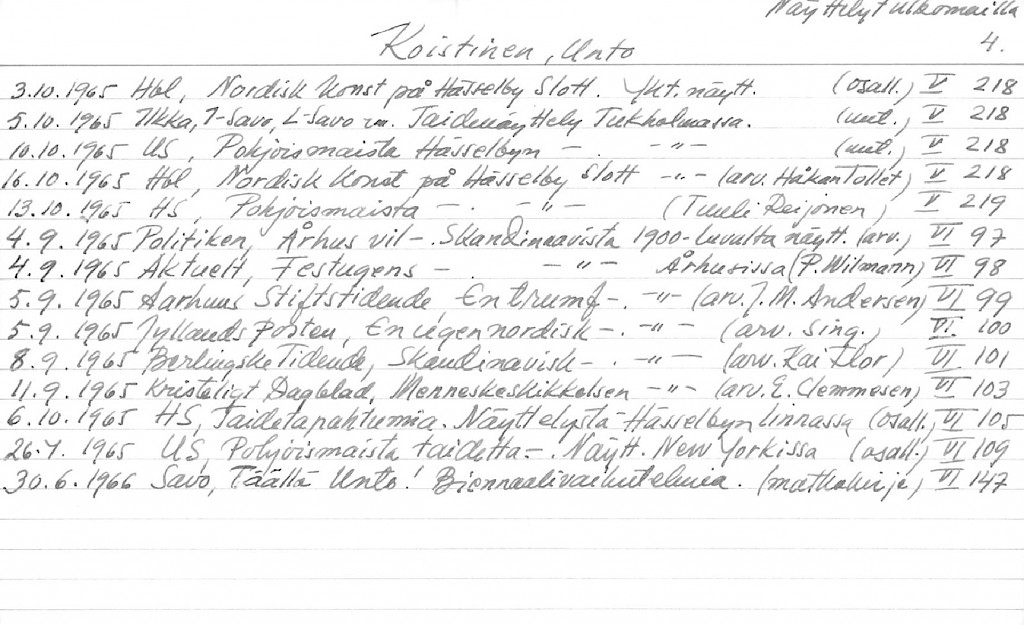 Näyttelyt ulkomailla
4.
Koistinen, Unto
3.10.1965 Hbl, Nordisk konst på Hässelby Slott. Ykt. näytt. (osall.) V 218
5.10.1965 Ilkka, I-Savo, L-Savo ym. Taidenäyttely Tukholmassa. (uut.) V 218
10.10.1965 US, Pohjoismaista Hässelbyn – . – " – (uut.) V 218
16.10.1965 Hbl, Nordisk Konst på Hässelby Slott – " – (arv. Håkan Tollet) V 218
13.10.1965 HS, Pohjoismaista – . – " – (Tuuli Reijonen) V 219
4.9.1965 Politiken, Århus vil – . Skandinaavista 1900-luvulta näytt. (arv.) VI 97
4.9.1965 Aktuelt, Festugens – . – " – Århusissa (P. Wilmann) VI 98
5.9.1965 Aarhuus Stiftstidende, En trumf – . – " – (arv. J. M. Andersen) VI 99
5.9.1965 Jyllands Posten, En egen nordisk – . – " – (arv. Sing.) VI 100
8.9.1965 Berlingske Tidende, Skandinavisk – . – " – (arv. Kai Flor) VI 101
11.9.1965 Kristeligt Dagblad, Menneskeskikkelsen – " – (arv. E. Clemmesen) VI 103
6.10.1965 HS, Taidetapahtumia. Näyttelystä Hässelbyn linnassa (osall.) VI 105
26.7.1965 US, Pohjoismaista taidetta – . Näytt. New Yorkissa (osall.) VI 109
30.6.1966 Savo, Täällä Unto! Biennaalivaikutelmia. (matkakirje) VI 147